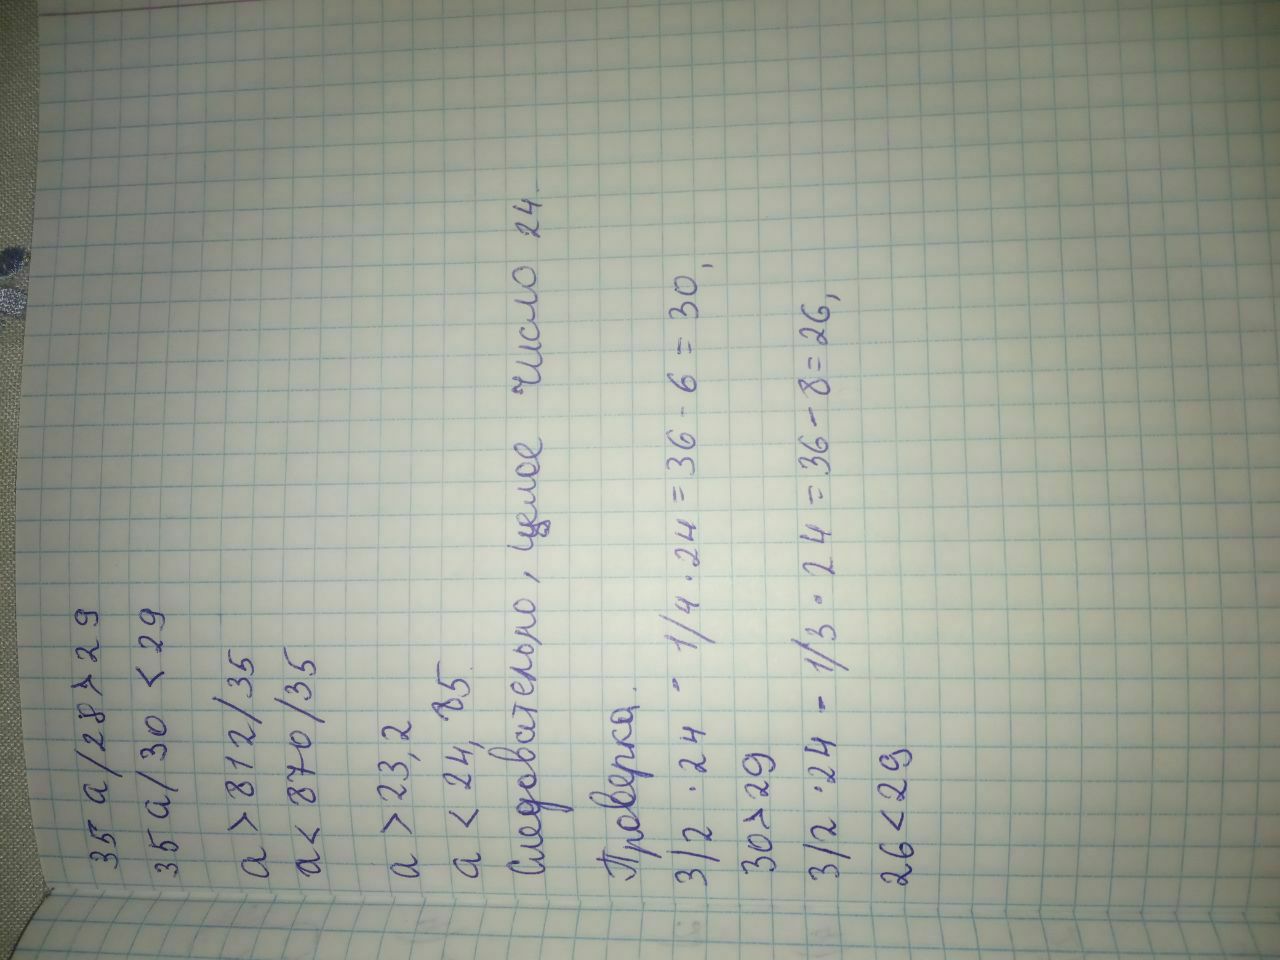 35 a/28 > 29
35 a/30 < 29
a > 812/35
a < 870/35
a > 23,2
a < 24,85
Следовательно, целое число 24.
Проверка.
3/2 · 24 - 1/4 · 24 = 36 - 6 = 30,
30 > 29
3/2 · 24 - 1/3 · 24 = 36 - 8 = 26,
26 < 29